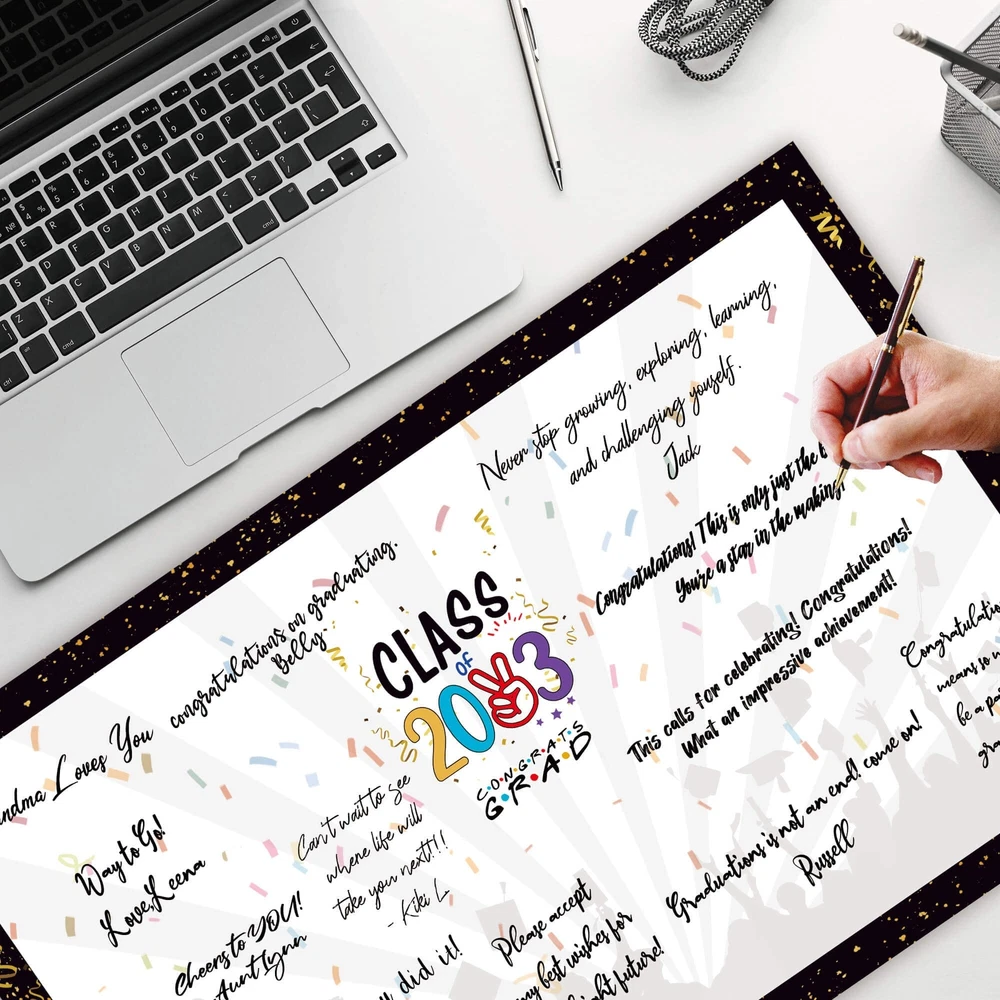 Never stop growing, exploring, learning,
and challenging youself.
Jack
Congratulations! This is only just the
You're a star in the making!
congratulations on graduating.
Belly
CLASS
OF
2023
CONGRATS
GRAD
This calls for celebrating! Congratulations!
What an impressive achievement!
Loves You
Way to Go!
Love,Leena
Can't wait to see
whene life will
take you next!!!
- Kiki L.
Cheers to YOU!
Aunt Lynn
did it!
Please accept
my best wishes for
future!
Graduations is not an end! come on!
Russell
means
be a